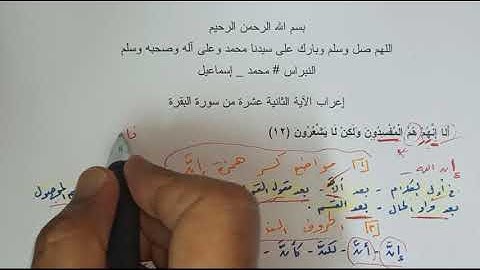 بسم الله الرحمن الرحيم
اللهم صل وسلم وبارك على سيدنا محمد وعلى آله وصحبه وسلم
النبراس # محمد _ إسماعيل
إعراب الآية الثانية عشرة من سورة البقرة
أَلَا إِنَّهُمْ هُمُ الْمُفْسِدُونَ وَلَكِنْ لَا يَشْعُرُونَ (١٢)
إن الله..
[١] مواضع كسر همزة إنَّ
في أول الكلام - بعد ألا - بعد مقول القـ الموصول
بعد واو الحال - بعد القسم
[٢] الحروف
إنَّ - أنَّ - لكنَّ - كأنَّ